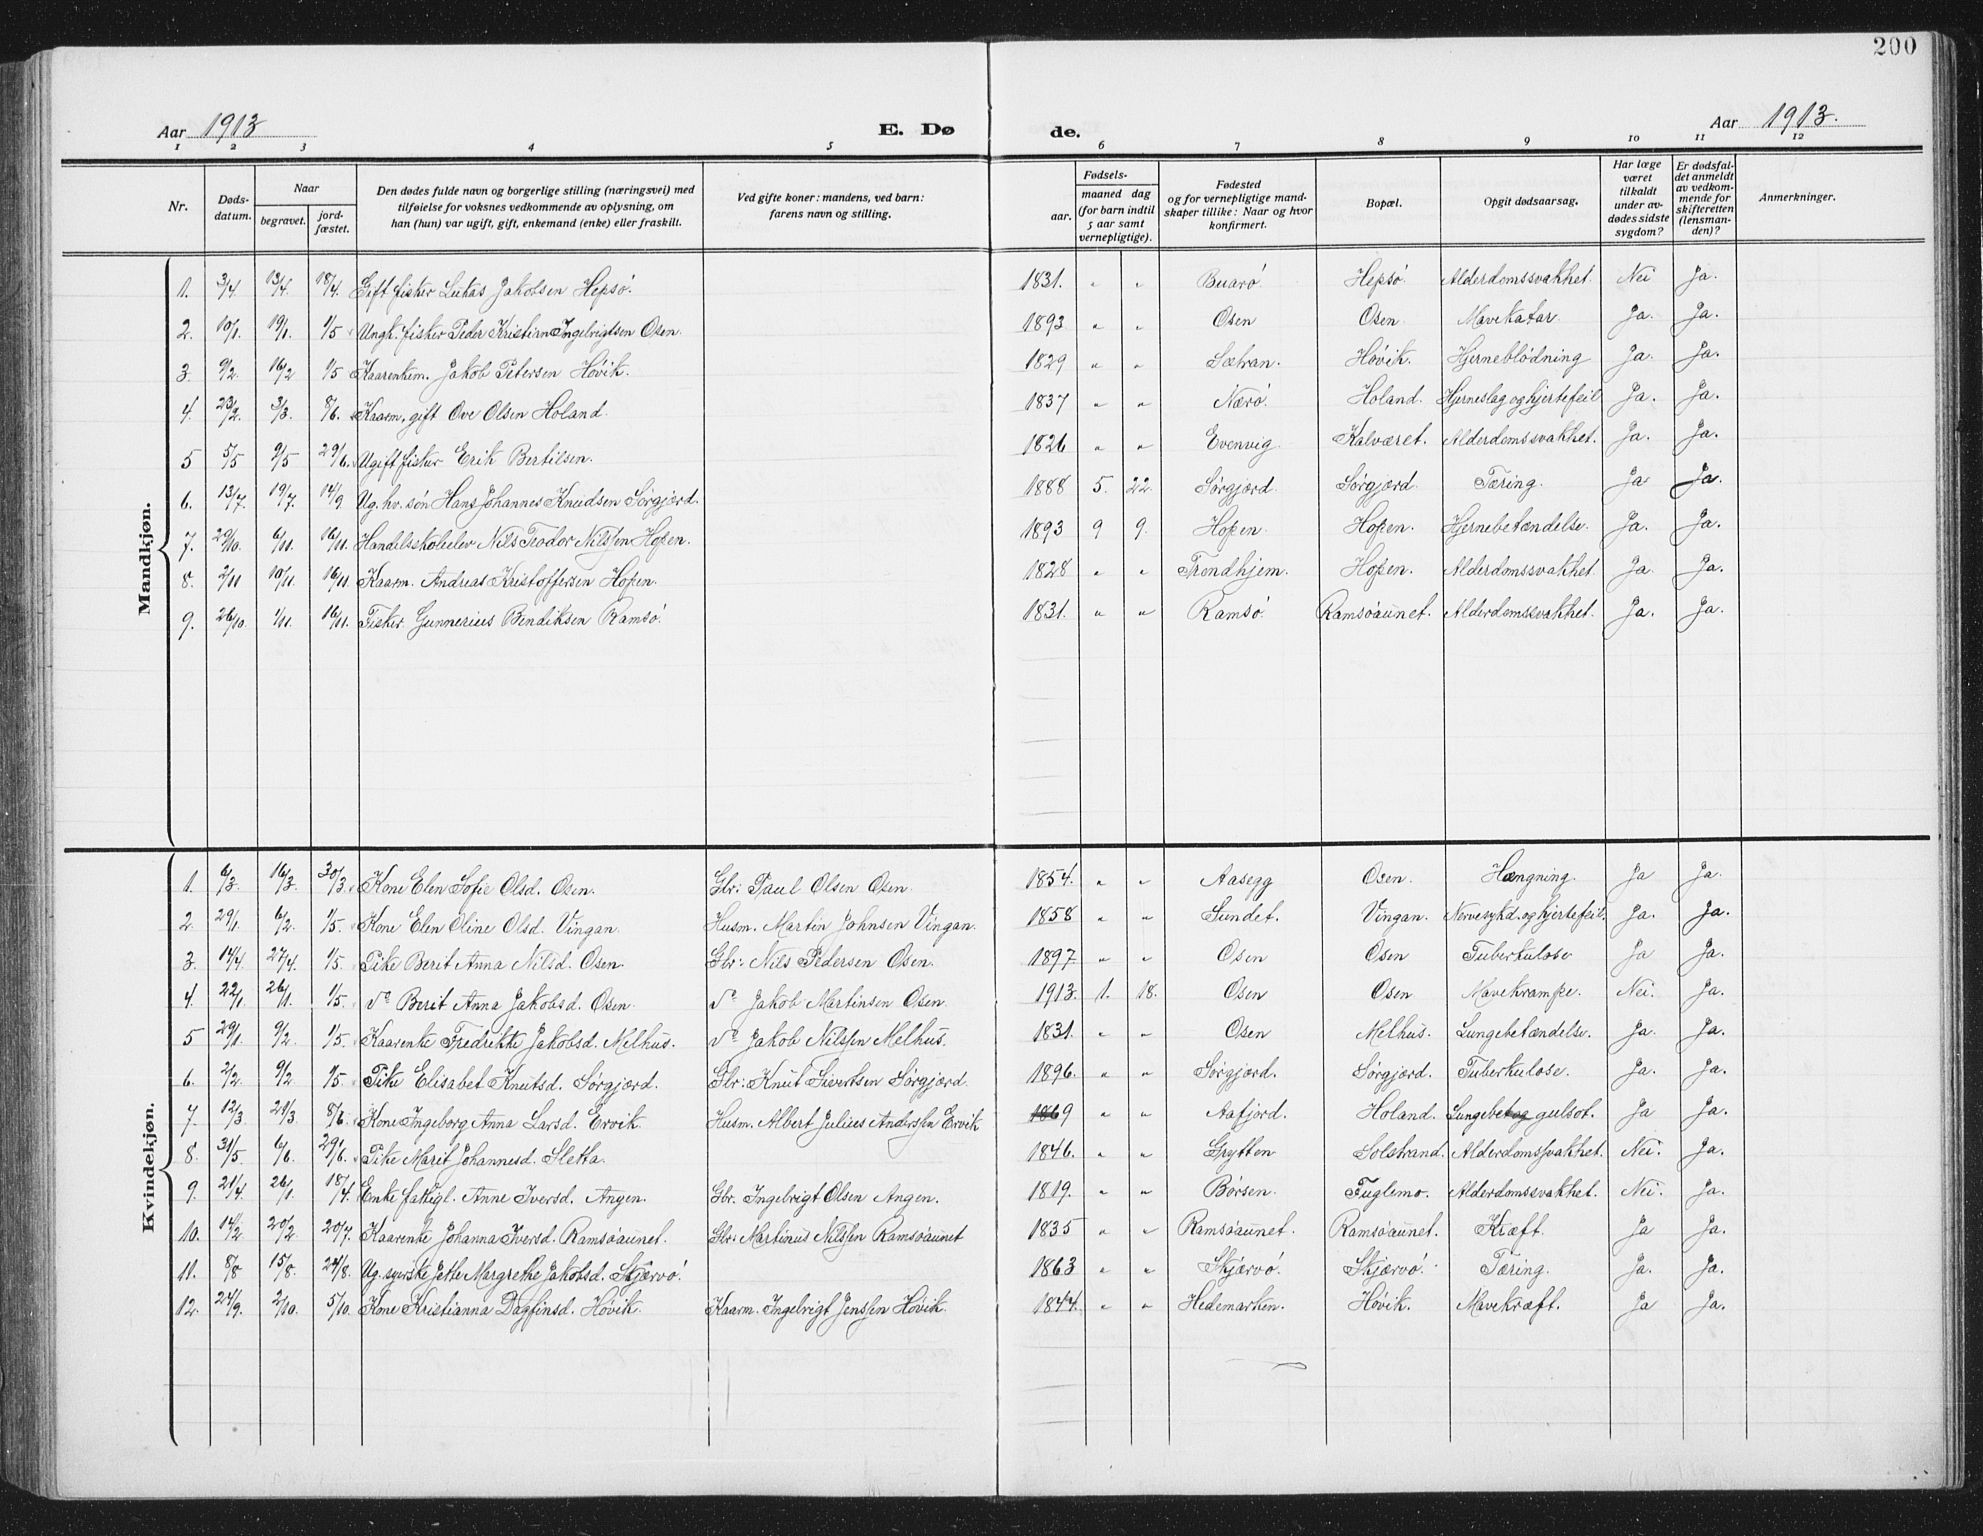 200
Aar 1913 E. Dø de. Aar 1913.
1 2 3 4 5 6 7 8 9 10 11 12
Nr. Døds-datum. Naar begravet. jord-fæstet. Den dødes fulde navn og borgerlige stilling (næringsvei) med tilføielse for voksnes vedkommende av oplysning, om han (hun) var ugift, gift, enkemand (enke) eller fraskilt. Ved gifte koner: mandens, ved barn: farens navn og stilling. Fødsels- aar. maaned dag (for barn indtil 5 aar samt vernepligtige). Fødested og for vernepligtige mand-skaper tillike: Naar og hvor konfirmert. Bopæl. Opgit dødsaarsag. Har læge været tilkaldt under av-dødes sidste sygdom? Er dødsfal-det anmeldt av vedkom-mende for skifteretten (lensman-den)? Anmerkninger.
Mandkjøn.
1. 3/4 13/4 18/4. Gift fisker Lukas Jakobsen Hepsø. 1831. " " Buarø Hepsø Alderdomssvakhet. Nei Ja.
2. 10/1. 19/1. 1/5 Ungk. fisker Peder Kristian Ingebrigtsen Osen. 1893 " " Osen Osen Mavekatar. Ja. Ja.
3. 9/2. 16/2 1/5 Kaarenkem. Jakob Petersen Høvik. 1829 " " Sætran. Høvik. Hjerneblödning Ja. Ja.
4. 23/2. 3/3. 8/6. Kaarm. gift Ove Olsen Holand. 1837 " " Nærø. Holand. Hjerneslag og hjertefeil Ja. Ja.
5 5/5 9/5 29/6. Ugift fisker Erik Bertilsen. 1826 " " Evenvig Kalværet. Alderdomssvakhet. Ja. Ja.
6. 13/7. 19/7 14/9 Ug. hv. søn Hans Johannes Knudsen Sørgjærd. 1888 5. 22. Sørgjærd. Sørgjærd Tæring. Ja Ja.
7. 29/10. 6/11 16/11. Handelsskoleelev Nils Teodor Nilssen Hopen. 1893 9 9. Hopen. Hopen. Hjernebetændelse. Ja. Ja.
8. 2/11 10/11. 16/11. Kaarm. Andreas Kristoffersen Hopen. 1828 " " Trondhjem. Hopen. Alderdomssvakhet. Ja. Ja.
9. 26/10. 1/11. 16/11. Fisker Gunnerius Bendiksen Ramsø. 1831. " " Ramsø. Ramsøaunet. Alderdomssvakhet. Ja. Ja.
Kvindekjøn.
1. 6/3 16/3. 30/3. Kone Elen Sofie Olsd. Osen. Gbr: Paul Olsen Osen. 1854. " " Aasegg Osen. Hængning. Ja Ja.
2. 29/1. 6/2. 1/5. Kone Elen Oline Olsd. Vingan. Husm. Martin Johnsen Vingan. 1858 " " Sundet. Vingan. Nervesykd. og hjertefeil. Ja. Ja.
3. 14/4. 27/4. 1/5. Pike Berit Anna Nilsd. Osen. Gbr: Nils Pedersen Osen. 1897. " " Osen Osen Tuberkulose Ja Ja.
4. 22/1 26/1. 1/5. do Berit Anna Jakobsd. Osen. do Jakob Martinsen Osen. 1913. 1. 18. Osen Osen Mavekrampe. Nei. Ja.
5 29/1. 9/2. 1/5. Kaarenke Fredrikke Jakobsd. Melhus. do Jakob Nilssen Melhus. 1831. " " Osen Melhus. Lungebetændelse. Ja. Ja.
6. 2/2. 9/2 1/5. Pike Elisabet Knutsd. Sørgjærd. Gbr: Knut Sivertsen Sørgjærd. 1896. " " Sørgjærd. Sørgjærd. Tuberkulose. Ja. Ja.
7. 12/3 21/3. 8/6. Kone Ingeborg Anna Larsd. Ervik. Husm. Albert Julius Anderssen Ervik 1869 " " Aafjord. Holand. Lungebet og gulsot. Ja Ja.
8. 31/5. 6/6. 29/6. Pike Marit Johannesd. Sletta. 1846. " " Grytten Solstrand. Alderdomssvakhet. Nei. Ja.
9. 21/4. 26/1. 18/4. Enke fatigl. Anne Iversd. Angen. Gbr. Ingebrigt Olsen Angen. 1819. " " Børsen. Fuglemo. Alderdomssvakhet. Nei. Ja.
10. 14/2 20/2 20/7. Kaarenke Johanna Iversd. Ramsøaunet. Gbr: Martinus Nilssen Ramsøaunet 1835 " " Ramsøaunet. Ramsøaunet. Kræft. Ja Ja.
11. 8/8 15/8. 24/8. Ug. syerske Jette Margrethe Jakobsd. Skjærvø. 1863 " " Skjærvø. Skjærvø. Tæring. Ja. Ja.
12. 24/9. 2/10. 5/10. Kone Kristianna Dagfinsd. Høvik. Kaarm. Ingebrigt Jenssen Høvik. 1844. " " Hedemarken. Høvik. Mavekræft. Ja Ja.